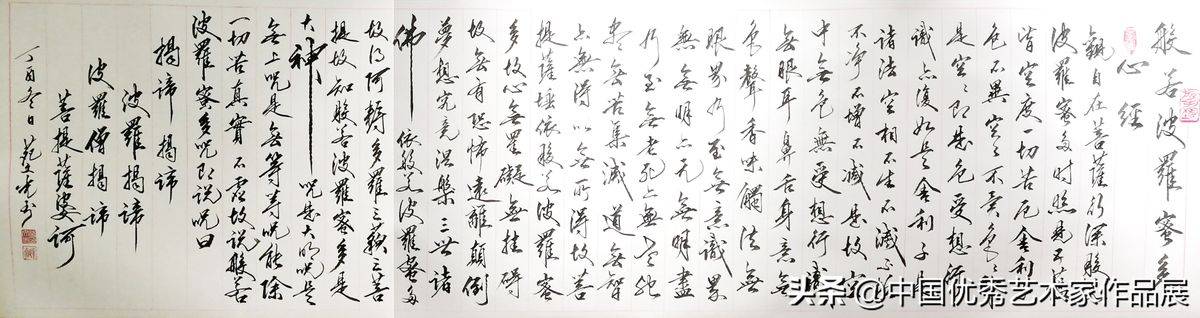 般若波羅蜜多
心經
觀自在菩薩行深般
波羅蜜多時照見五蘊
皆空度一切苦厄舍利
色不異空〻不異色〻
是空〻即是色受想行
識亦復如是舍利子是
諸法空相不生不滅不垢
不淨不增不減是故空
中無色無受想行識
無眼耳鼻舌身意無
色聲香味觸法無
眼界乃至無意識界
無無明亦无無明盡
乃至無老死亦無老死
盡無苦集滅道無智
亦無得以無所得故菩
提薩埵依般若波羅蜜
多故心無罣礙無挂碍
故無有恐怖遠離顛倒
夢想究竟涅槃三世諸
佛依般若波羅蜜多
故得阿耨多羅三藐三菩
提故知般若波羅蜜多是
大神咒是大明咒是
無上咒是無等等咒能除
一切苦真實不虛故說般若
波羅蜜多咒即說咒曰
揭諦 揭諦
波羅揭諦
波羅僧揭諦
菩提薩婆訶
丁酉冬日范书
头条@中国优秀艺术家作品展